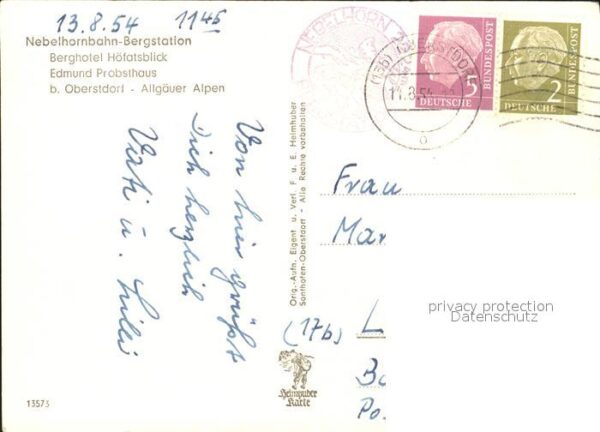 13.8.54 11 45
Nebelhornbahn-Bergstation
Berghotel Höfatsblick
Edmund Probsthaus
b. Oberstdorf - Allgäuer Alpen
Von hier grüßt
Dich herzlich
Vati u.
13573
Orig.-Aufn. Eigent u. Verl. F. u. E. Heimhuber
Sonthofen-Oberstdorf - Alle Rechte vorbehalten
Heimhuber
Karte
NEBELHORN
OBERSTDORF
5
DEUTSCHE
BUNDESPOST
2
DEUTSCHE
BUNDESPOST
Frau
Mar
(17b) L
Po.
privacy protection
Datenschutz